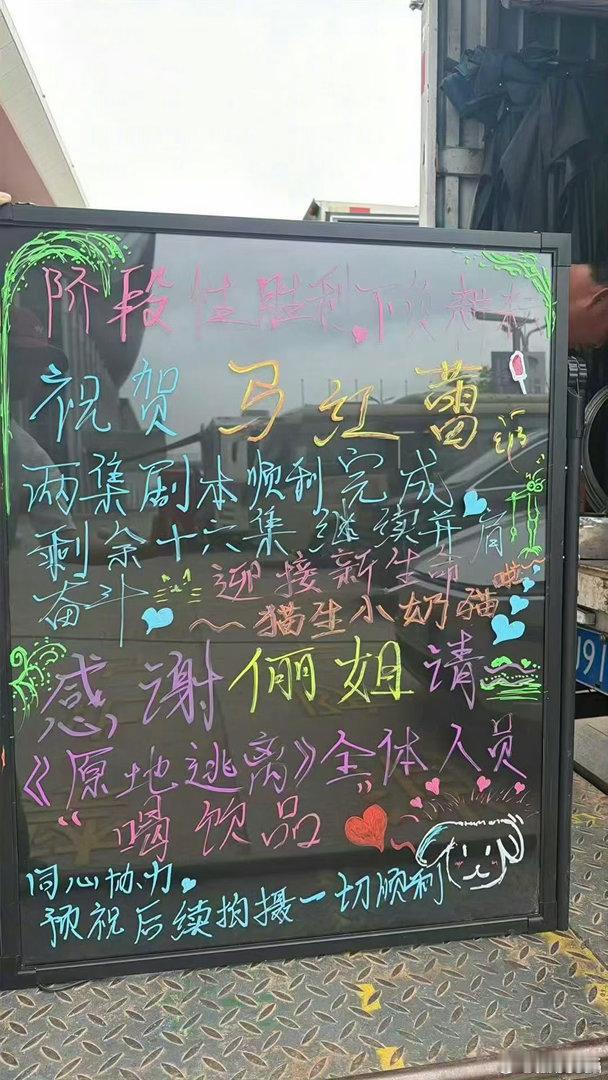 阶段性胜利
祝贺马红蕾
两集剧本顺利完成
剩余十六集继续并肩
奋斗 迎接新生命
~猫生小奶猫
感谢俪姐请
《原地逃离》全体人员
"喝饮品"
同心协力
预祝后续拍摄一切顺利